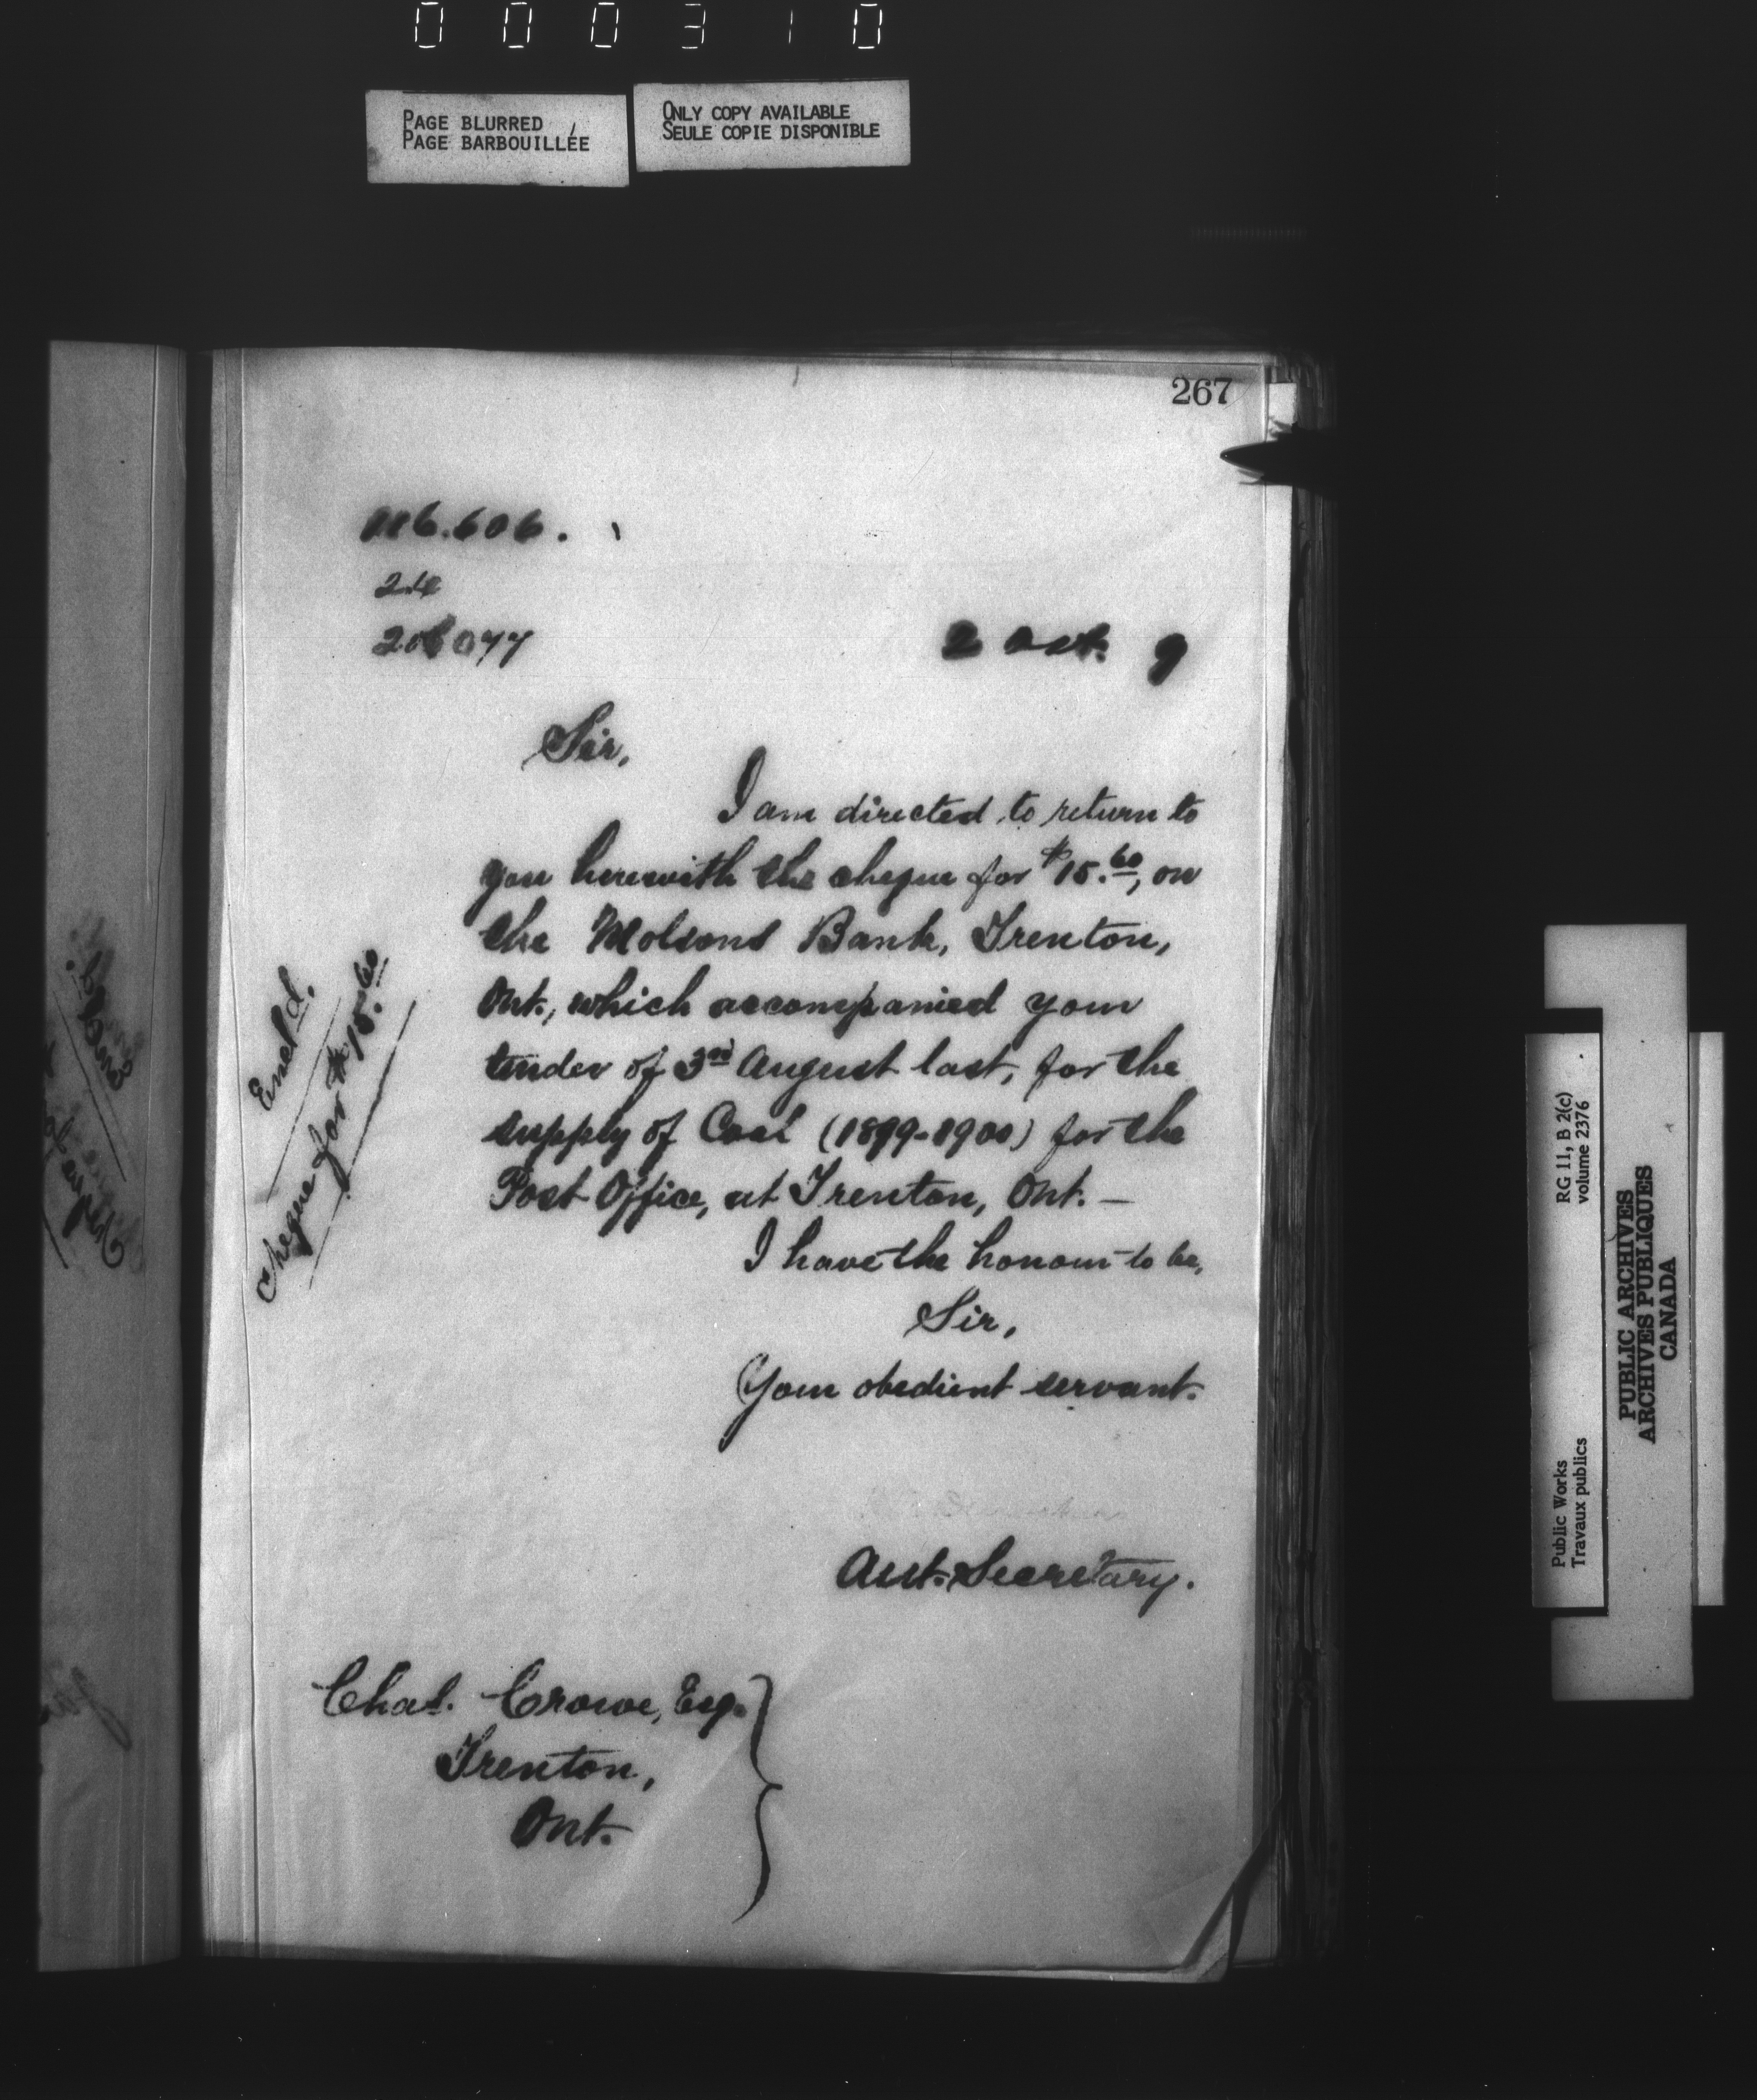 000310
PAGE BLURRED
PAGE BARBOUILLÉE
ONLY COPY AVAILABLE
SEULE COPIE DISPONIBLE
267
2 Oct. 9
Sir,
I am directed to return to
you herewith the cheque for $15.60, on
the Molsons Bank, Trenton,
Ont., which accompanied your
tender of 3rd August last, for the
supply of Coal (1899-1900) for the
Post Office, at Trenton, Ont. —
I have the honour to be,
Sir,
Your obedient servant.
Asst. Secretary.
Chas. Crowe, Esq.
Trenton,
Ont.
Encld.
Cheque for $15.60
RG 11, B 2(c)
volume 2376
Public Works
Travaux publics
PUBLIC ARCHIVES
ARCHIVES PUBLIQUES
CANADA